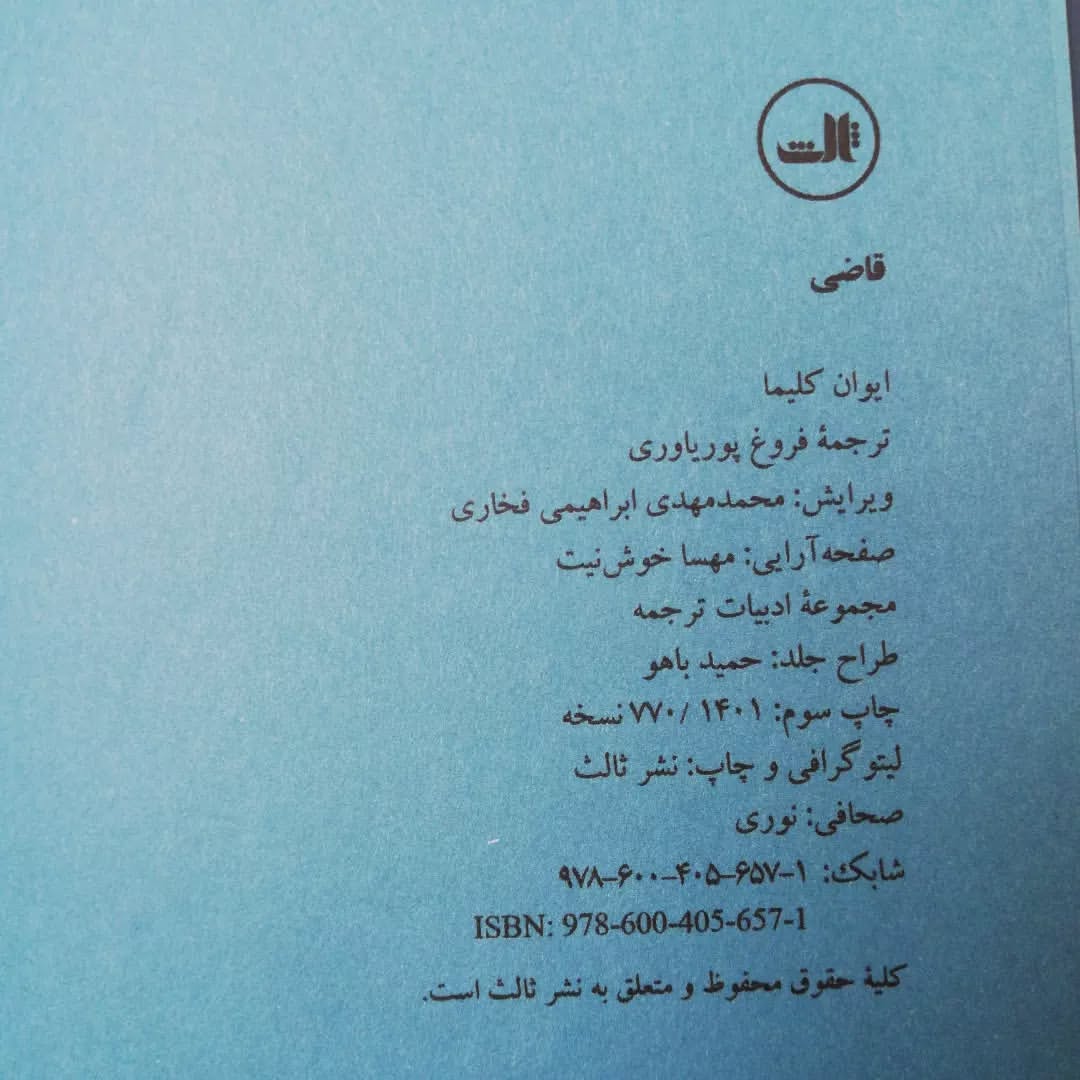 ثالث
قاضی
ایوان کلیما
ترجمهٔ فروغ پوریاوری
ویرایش: محمدمهدی ابراهیمی فخاری
صفحه‌آرایی: مهسا خوش‌نیت
مجموعهٔ ادبیات ترجمه
طراح جلد: حمید باهو
چاپ سوم: ۱۴۰۱ /۷۷۰ نسخه
لیتوگرافی و چاپ: نشر ثالث
صحافی: نوری
شابک: ۱-۶۵۷-۴۰۵-۶۰۰-۹۷۸
ISBN: 978-600-405-657-1
کلیهٔ حقوق محفوظ و متعلق به نشر ثالث است.